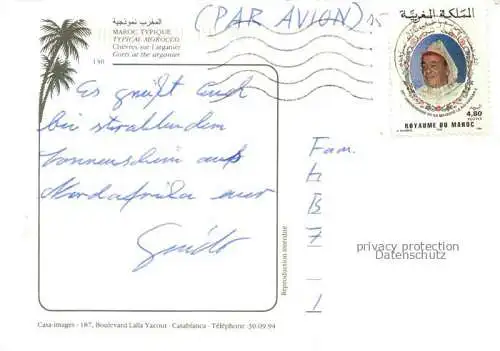 (PAR AVION)
المغرب نموذجية
MAROC TYPIQUE
TYPICAL MOROCCO
Chèvres sur l'arganier
Goats at the arganier
المملكة المغربية
4,80
POSTES
ROYAUME DU MAROC
Es grüßt Euch
bei strahlendem
Sonnenschein aus
Nordafrika euer
Guido
Fam.
h
B
7
1
privacy protection
DALL AKPOOL.COM
Reproduction interdite
Casa-images - 187, Boulevard Lalla Yacout - Casablanca - Téléphone 30.09.94